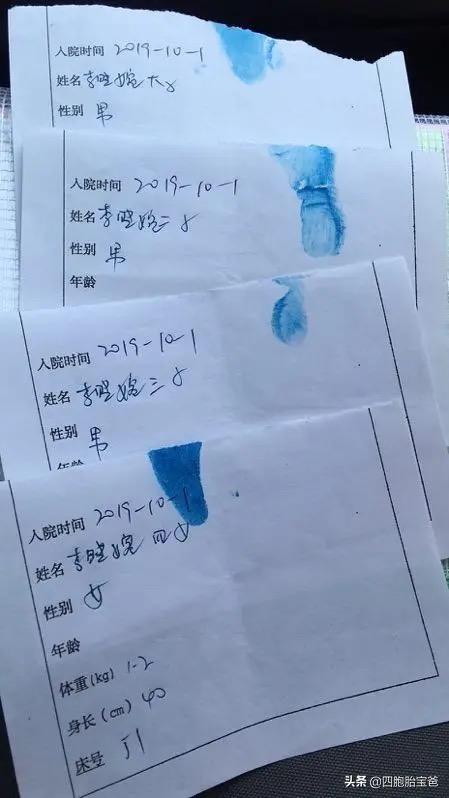 入院时间 2019-10-1
姓名 李晓婉大子
性别 男
入院时间 2019-10-1
姓名 李晓婉二子
性别 男
年龄
入院时间 2019-10-1
姓名 李晓婉三子
性别 男
年龄
入院时间 2019-10-1
姓名 李晓婉四女
性别 女
年龄
体重(kg) 1.2
身长(cm) 40
床号 J1
头条 @四胞胎宝爸